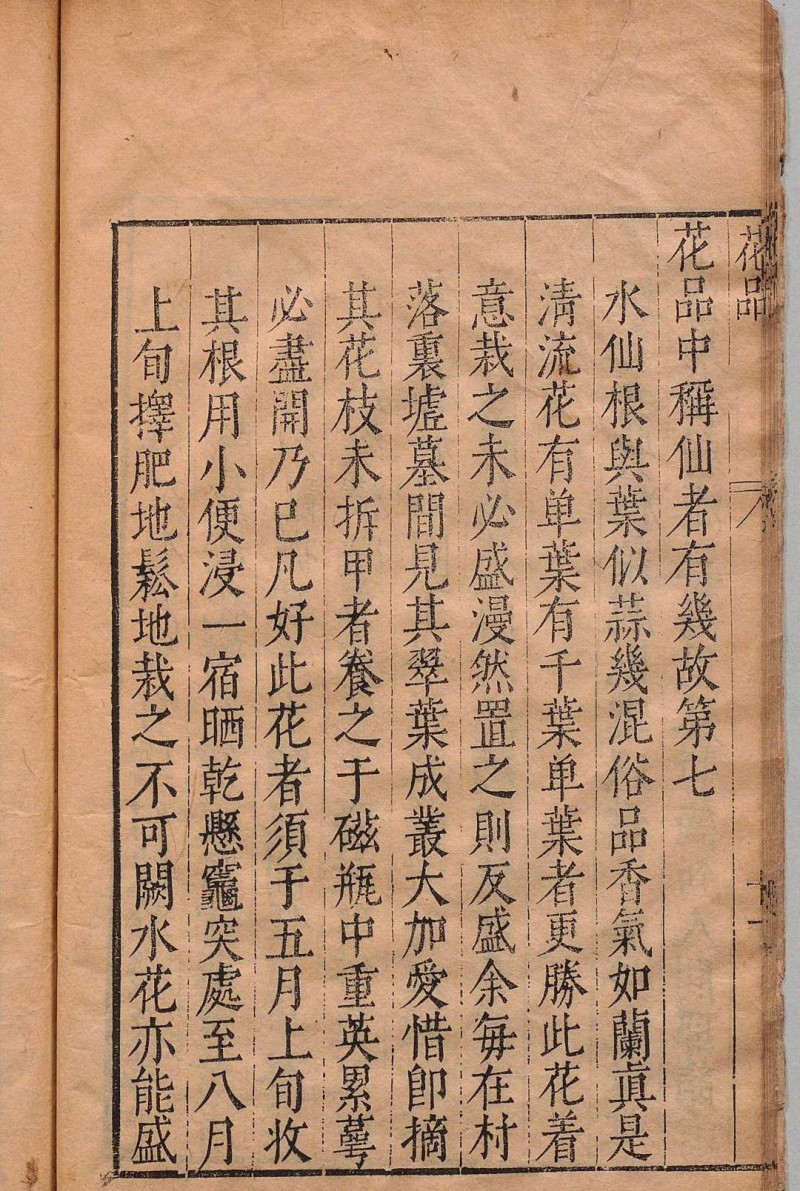 花品
花品中稱仙者有幾故第七
水仙根與葉似蒜幾混俗品香氣如蘭眞是
淸流花有单葉有千葉单葉者更勝此花着
意栽之未必盛漫然置之則反盛余每在村
落裏墟墓間見其翠葉成叢大加愛惜卽摘
其花枝未拆甲者養之于磁瓶中重英累萼
必盡開乃已凡好此花者須于五月上旬收
其根用小便浸一宿晒乾懸竈突處至八月
上旬擇肥地鬆地栽之不可闕水花亦能盛